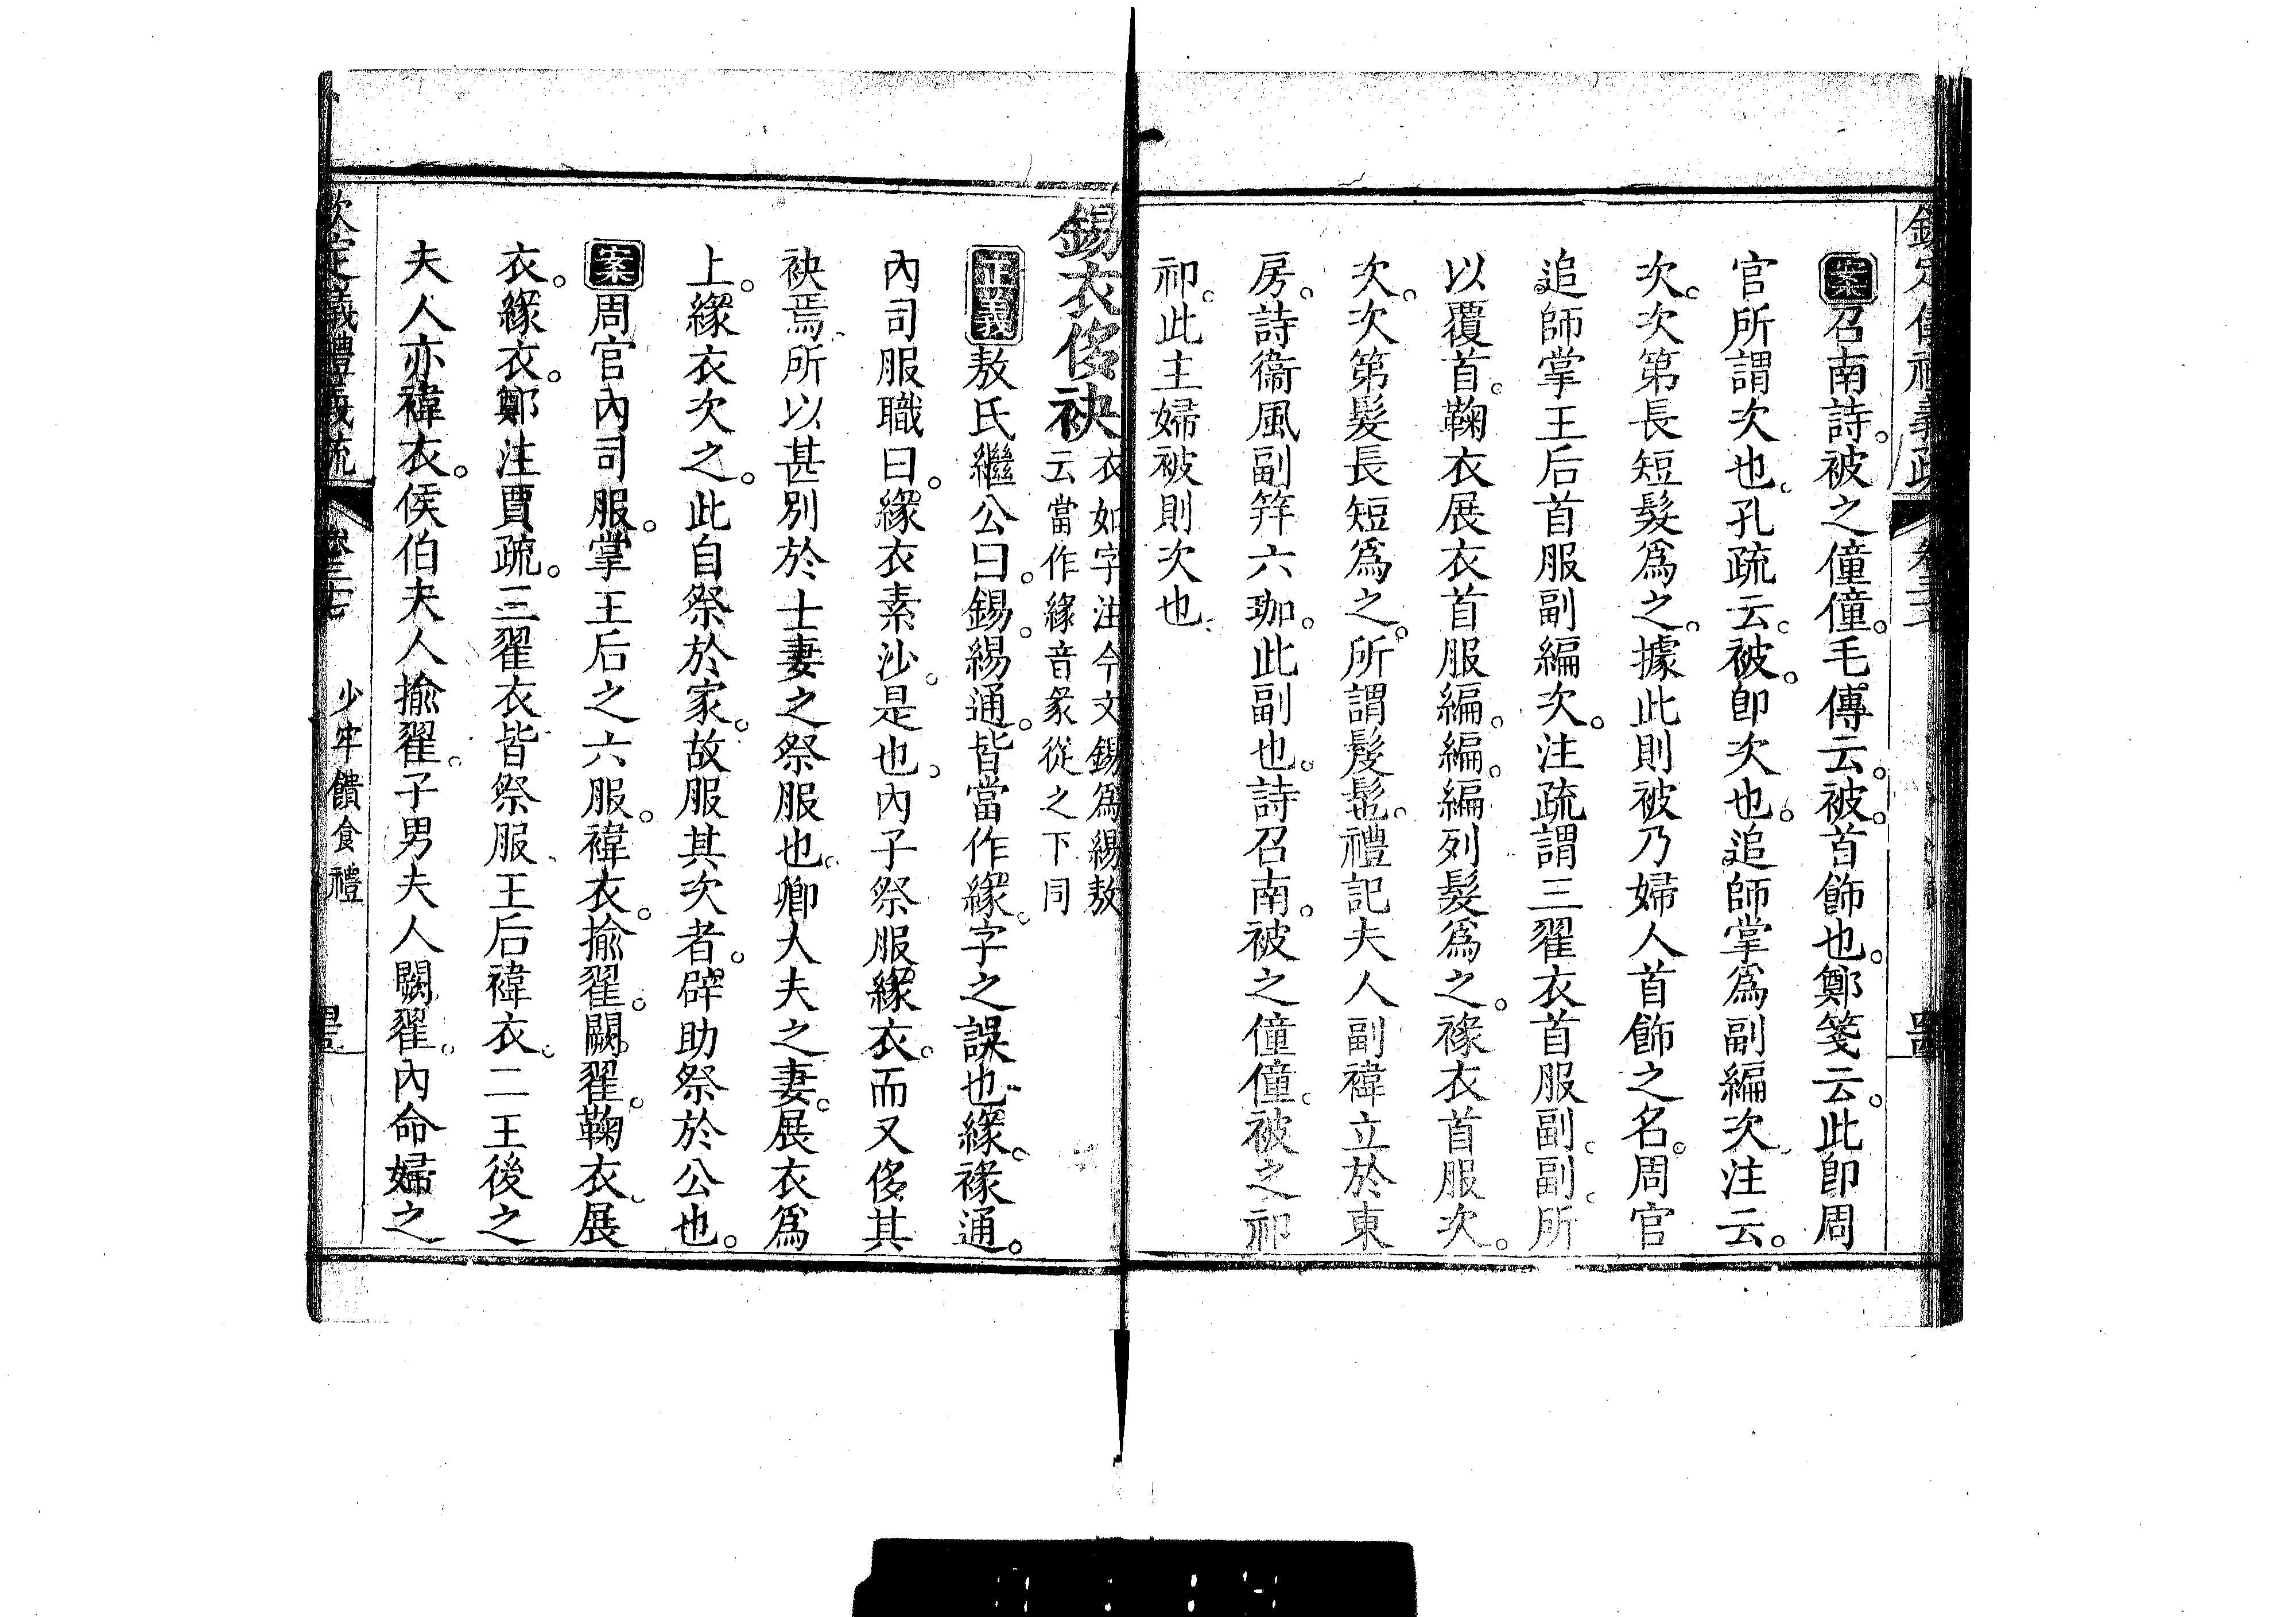 案召南詩。被之僮僮。毛傳云。被。首飾也。鄭箋云。此即周
官所謂次也。孔疏云。被。即次也。追師掌爲副編次。注云。
次。次第長短髮爲之。據此則被乃婦人首飾之名。周官
追師掌王后首服副編次。注疏謂三翟衣首服副。副。所
以覆首。鞠衣展衣首服編。編。編列髮爲之。褖衣首服次。
次。次第髮長短爲之。所謂髲髢。禮記夫人副褘立於東
房。詩衞風副笄六珈。此副也。詩召南。被之僮僮。被之祁
祁。此主婦被則次也。
錫衣侈袂衣如字注今文錫爲緆敖
云當作緣音彖從之下同
正義敖氏繼公曰。錫。緆通。皆當作緣。字之誤也。緣。褖通。
內司服職曰。緣衣素沙。是也。內子祭服緣衣。而又侈其
袂焉。所以甚別於士妻之祭服也。卿大夫之妻。展衣爲
上。緣衣次之。此自祭於家。故服其次者。辟助祭於公也。
案周官內司服。掌王后之六服。褘衣。揄翟。闕翟。鞠衣。展
衣。緣衣。鄭注賈疏。三翟衣皆祭服。王后褘衣。二王後之
夫人亦褘衣。侯伯夫人揄翟。子男夫人闕翟。內命婦之
欽定儀禮義疏
少牢饋食禮